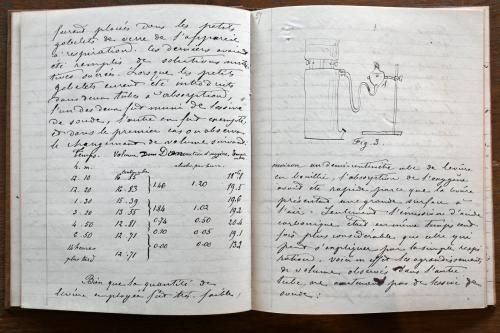 furent placés dans les petits
gobelets de verre de l'appareil
à respiration. Les derniers avaient
été remplis de solutions nutri
tives sucrées. Lorsque les petits
gobelets eurent été introduits
dans deux tubes à absorption,
l'un des deux fut muni de lessive
de soude, l'autre en fut exempté,
et dans le premier cas on observa
le changement de volume suivant.
Temps. Volume
h. m.
12.10 16.85 18
12.20 16.83 1.46 1.20 19.5
1.20 15.39 19.6
3.20 13.55 1.84 1.02 19.2
4.50 12.81 0.74 0.50 20.6
6.50 12.71 0.10 0.05 19.1
14 heures 0.00 0.00 13.2
plus tard 12.71
Bien que la quantité de
levure employée fût très faible,
Fig. 3.
moins un demi-centimètre cube de levure
en bouillie, l'absorption de l'oxygène
avait été rapide parce que la levure
présentait une grande surface à
l'air. Seulement l'émission d'acide
carbonique était en même temps cent
fois plus considérable que celle qui
peut s'expliquer par la simple respi
ration. Voici en effet les agrandissements
de volume observés dans l'autre
tube, ne contenant pas de lessive de
soude :